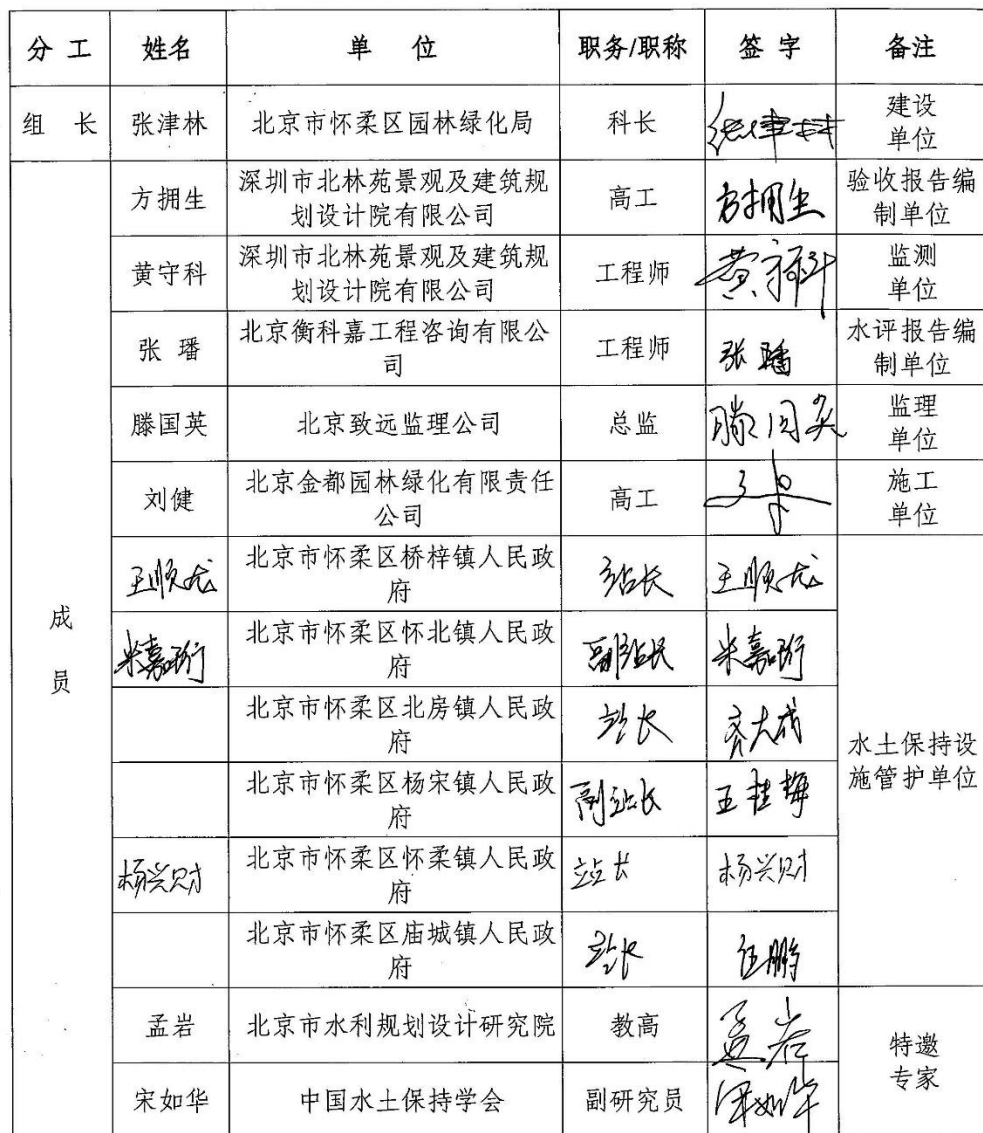 分 工 姓名 单 位 职务/职称 签 字 备注
组 长 张津林 北京市怀柔区园林绿化局 科长 张津林 建设
单位
成
员
方拥生 深圳市北林苑景观及建筑规
划设计院有限公司 高工 方拥生 验收报告编
制单位
黄守科 深圳市北林苑景观及建筑规
划设计院有限公司 工程师 黄守科 监测
单位
张 璠 北京衡科嘉工程咨询有限公
司 工程师 张璠 水评报告编
制单位
滕国英 北京致远监理公司 总监 滕国英 监理
单位
刘健 北京金都园林绿化有限责任
公司 高工 施工
单位
王顺龙 北京市怀柔区桥梓镇人民政
府 站长 王顺龙
米嘉珩 北京市怀柔区怀北镇人民政
府 副站长 米嘉珩
北京市怀柔区北房镇人民政
府 站长 齐大成
北京市怀柔区杨宋镇人民政
府 副站长 王桂梅
杨兴财 北京市怀柔区怀柔镇人民政
府 站长 杨兴财
北京市怀柔区庙城镇人民政
府 站长
水土保持设
施管护单位
孟岩 北京市水利规划设计研究院 教高 孟岩
宋如华 中国水土保持学会 副研究员 宋如华
特邀
专家